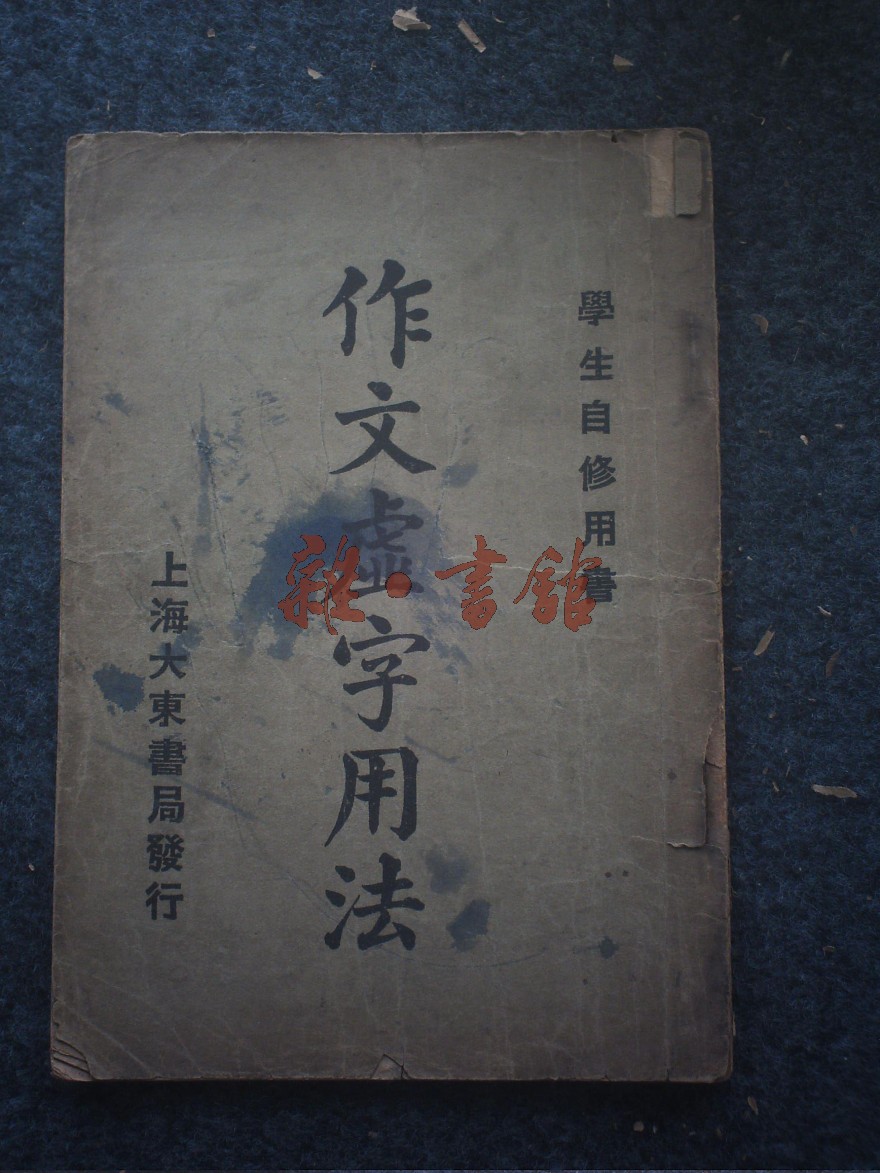 學生自修用書
作文虛字用法
上海大東書局發行
雜·書館